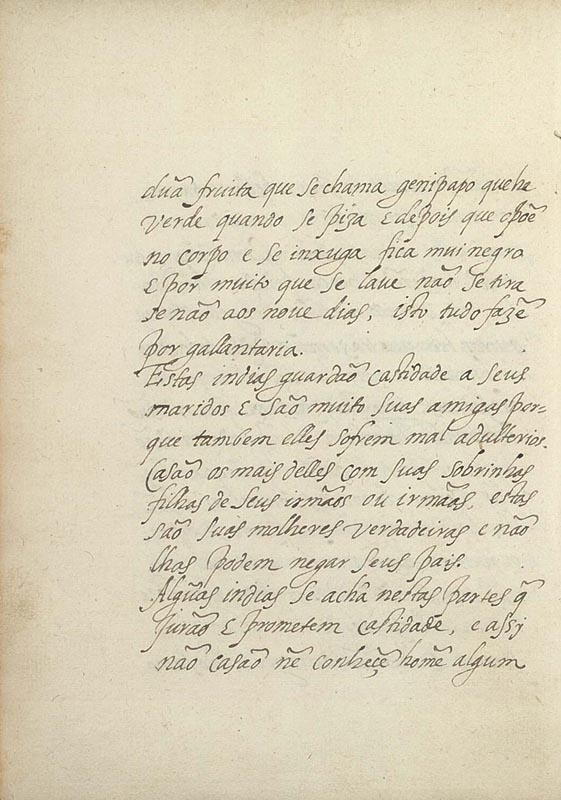 duã fruita que se chama genipapo que he
verde quando se piza E depois que opõe
no corpo e se inxuga fica mui negro
E por muito que se lave não se tira
senão aos nove dias, isto tudo fazẽ
por gallantaria.
Estas indias guardão castidade a seus
maridos E são muito suas amigas por=
que tambem elles sofrem mal adulterios.
Casão os mais delles com suas sobrinhas
filhas de seus irmãos ou irmãas, estas
são suas molheres verdadeiras e não
lhas podem negar seus pais.
Algũas indias se achã nestas partes q̃
jurão E prometem castidade, e assj
não casão nẽ conheçẽ homẽ algum